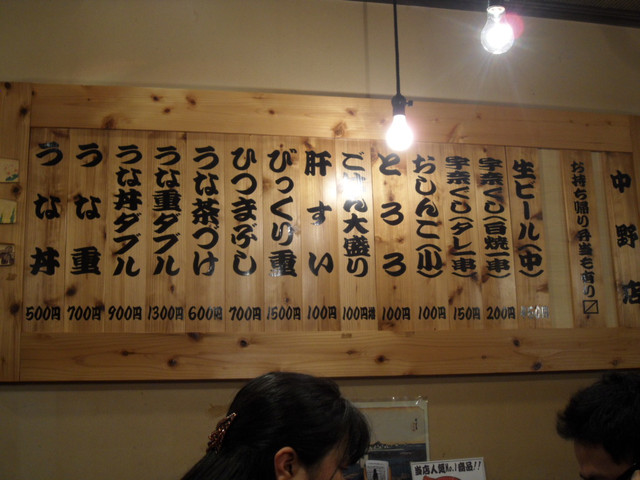 中野店
お持ち帰り弁当もあり〼
生ビール(中)
宇奈くし(白焼一串) 200円
宇奈くし(タレ一串) 150円
おしんこ(小) 100円
とろろ 100円
ごはん大盛り 100円増
肝すい 100円
びっくり重 1500円
ひつまぶし 700円
うな茶づけ 600円
うな重ダブル 1300円
うな丼ダブル 900円
うな重 700円
うな丼 500円
当店人気No.1商品!!